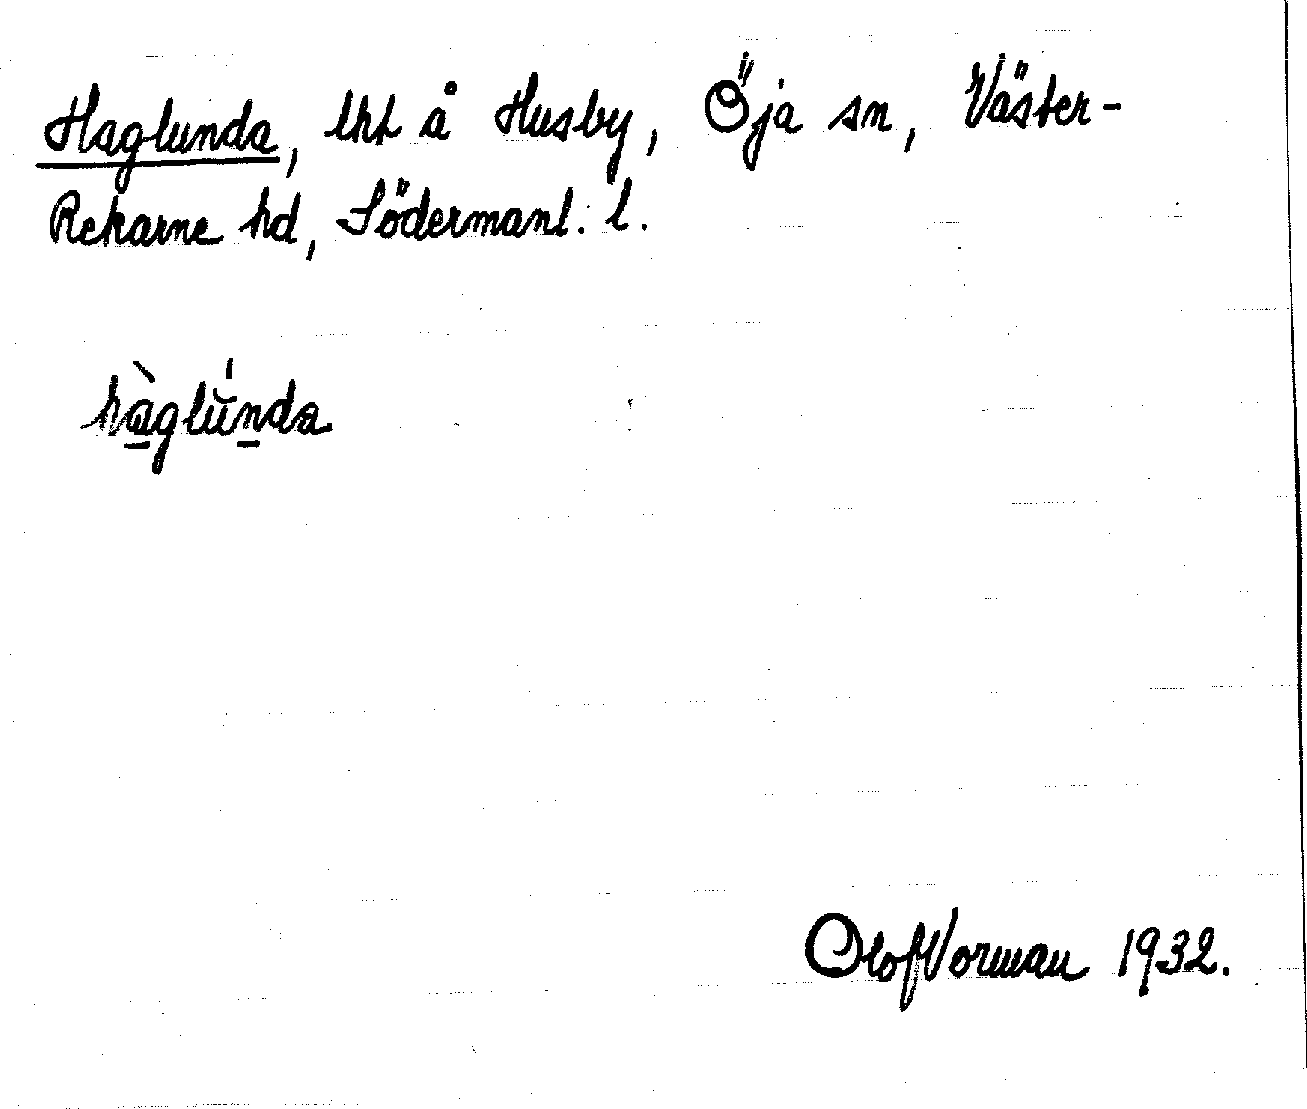 Haglunda, lht å Husby, Öja sn, Väster-
Rekarne hd, Södermanl. l.
hà̱glŭ́ṉda
Olof Vorman 1932.